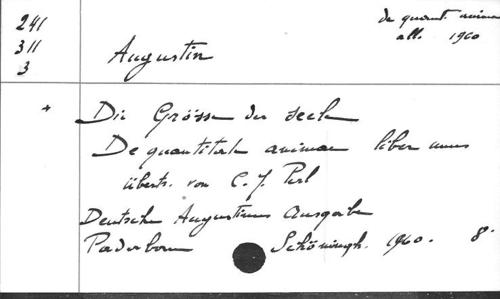 241
311
3
de quant. animae
all. 1960
Augustin
* Die Grösse der Seele
De quantitate animae liber unus
übers. von C. J. Perl
Deutsche Augustinus Ausgabe
Paderborn Schöningh. 1960. 8°